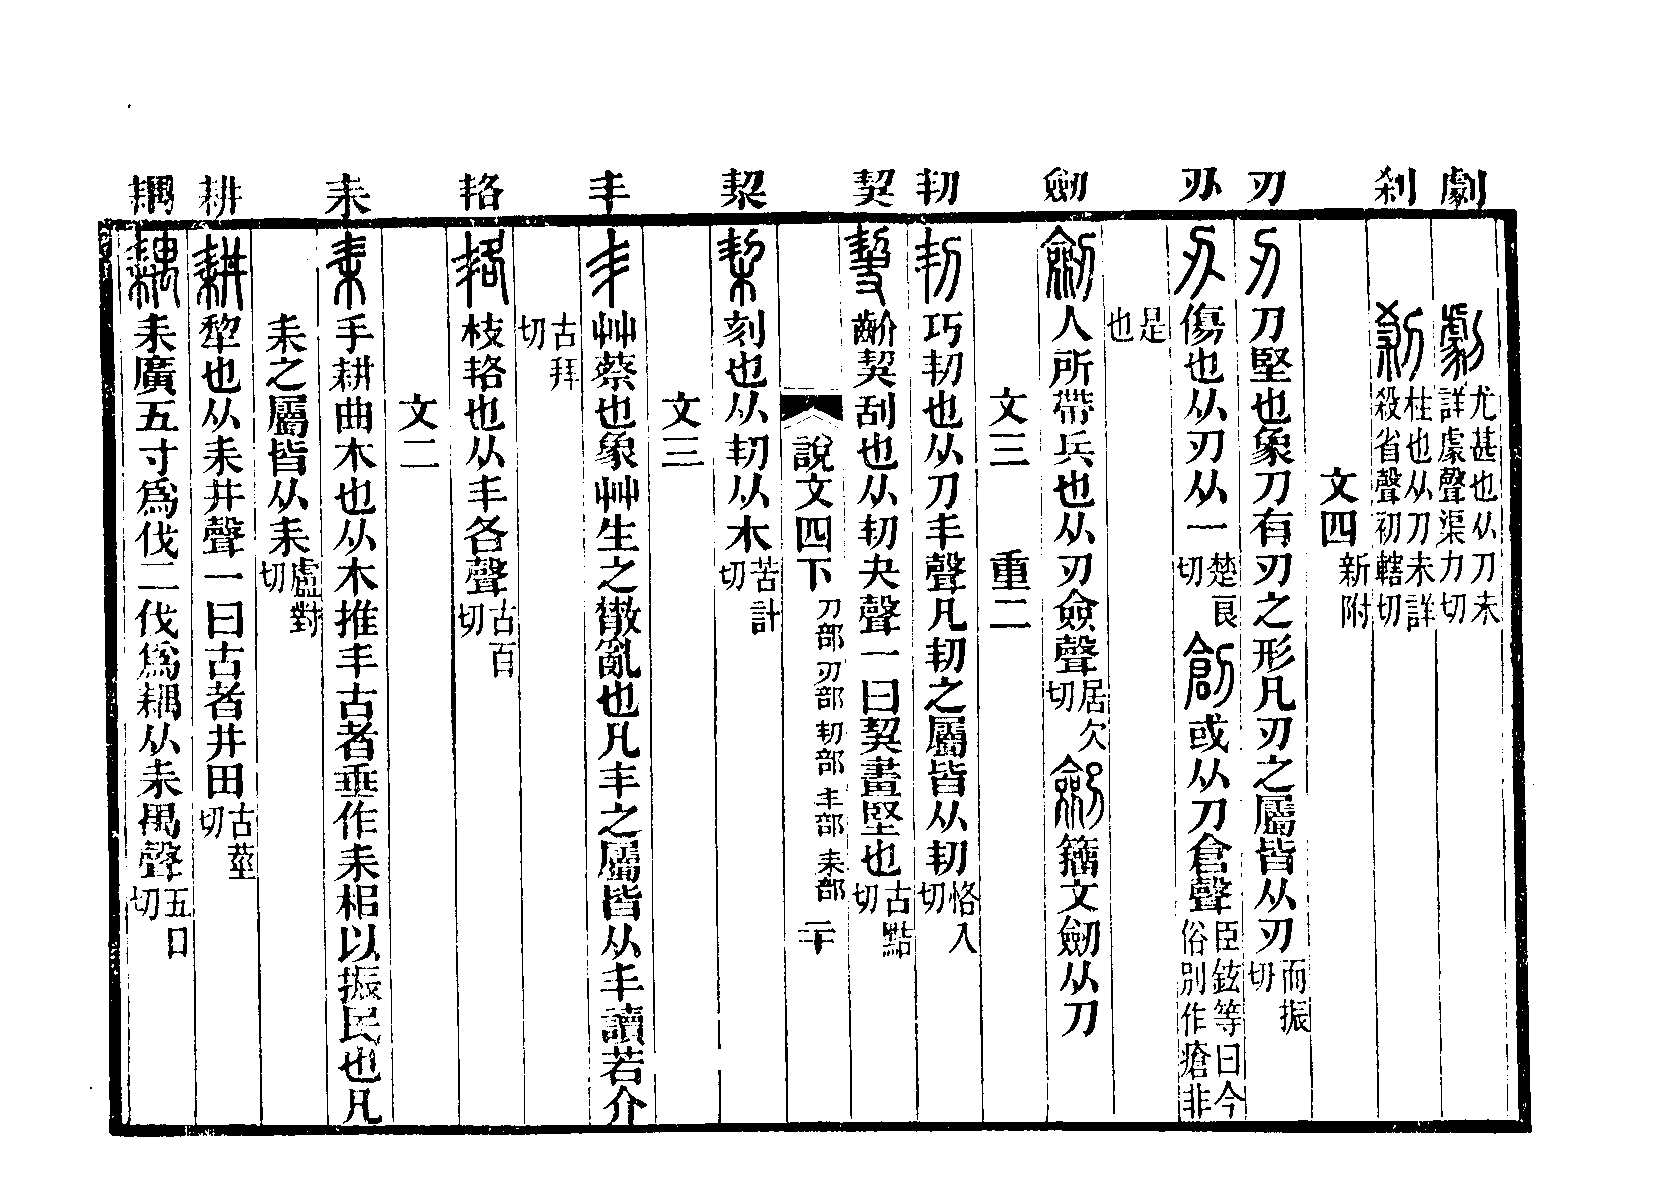 劇 刹 刃 刅 劒 㓞 契 栔 丯 䩻 耒 耕 耦
劇 尤甚也从刀未詳豦聲渠力切
刹 柱也从刀未詳殺省聲初轄切
文四 新附
刃 刀堅也象刀有刃之形凡刃之屬皆从刃 而振切
刅 傷也从刃从一 楚良切 創 或从刀倉聲 臣鉉等曰今俗別作瘡非
是也
劒 人所帶兵也从刃僉聲 居欠切 劍 籀文劒从刀
文三 重二
㓞 巧㓞也从刀丯聲凡㓞之屬皆从㓞 恪八切
契 齘契刮也从㓞夬聲一曰契畫堅也 古黠切
說文四下 刀部 刃部 㓞部 丯部 耒部 二十
栔 刻也从㓞从木 苦計切
文三
丯 艸蔡也象艸生之散亂也凡丯之屬皆从丯讀若介
古拜切
䩻 枝䩻也从丯各聲 古百切
文二
耒 手耕曲木也从木推丯古者垂作耒梠以振民也凡
耒之屬皆从耒 盧對切
耕 犂也从耒井聲一曰古者井田 古莖切
耦 耒廣五寸爲伐二伐爲耦从耒禺聲 五口切